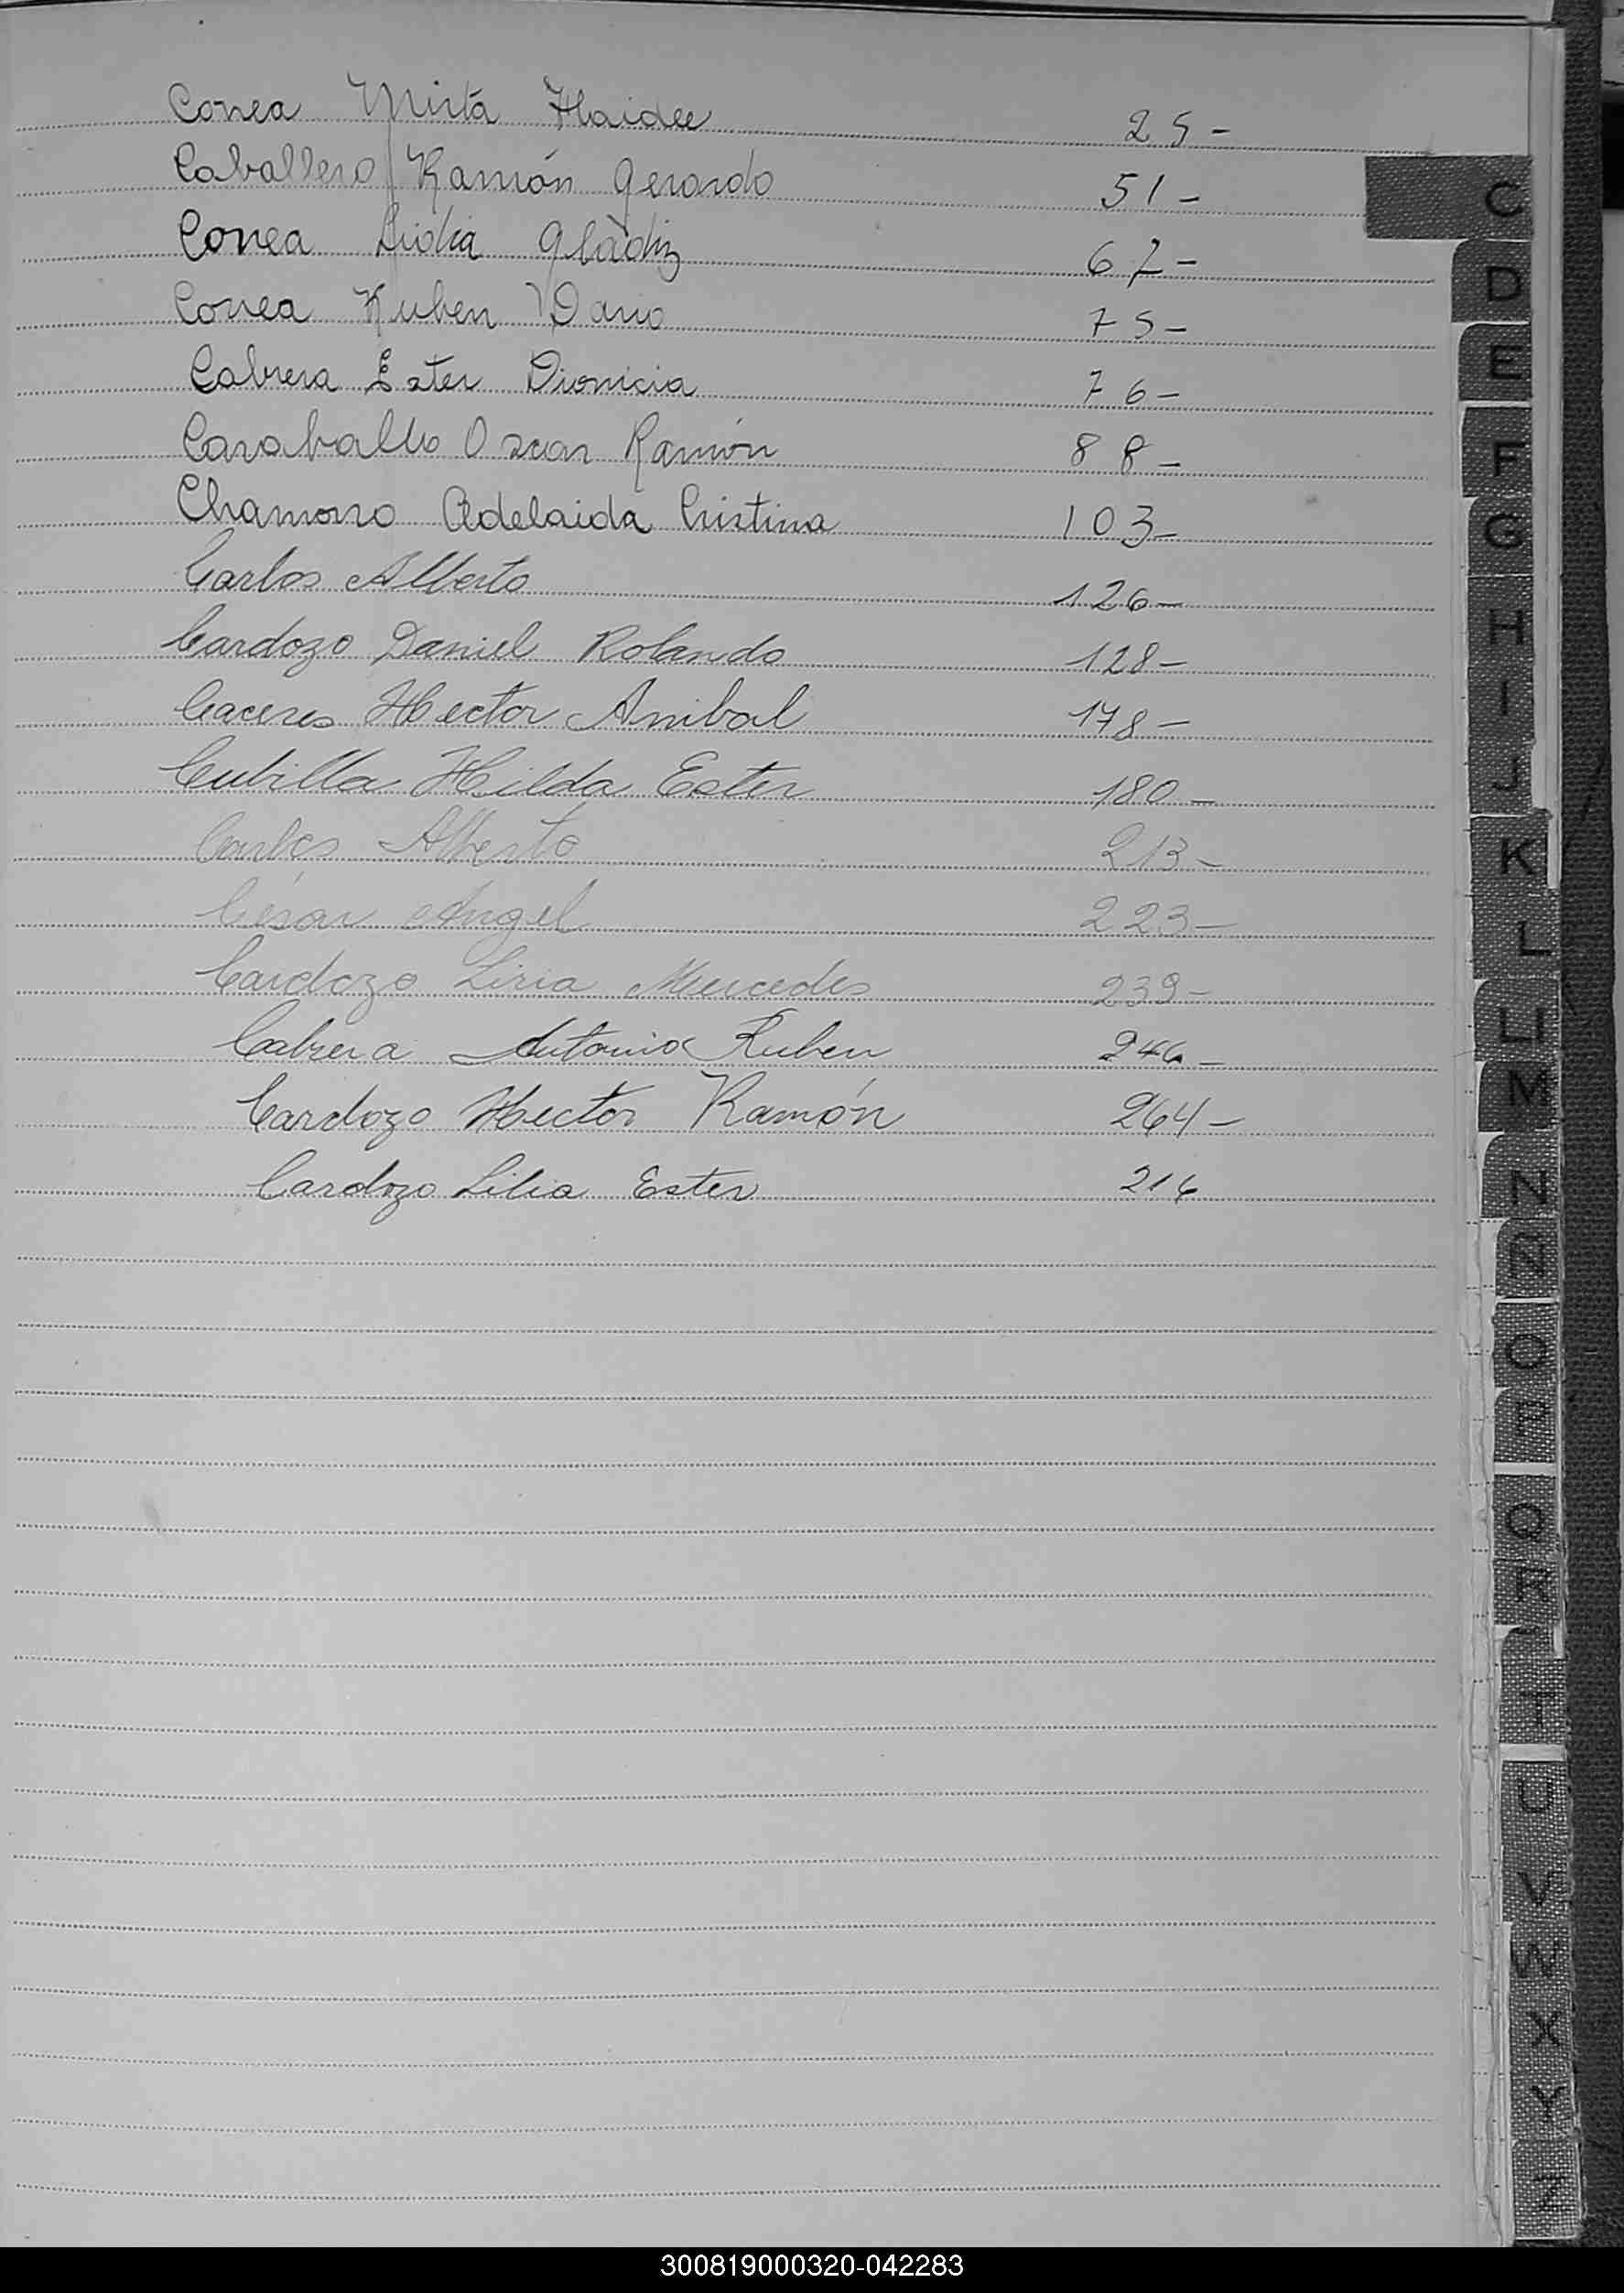 Correa Mirta Haidee 25-
Caballero Ramón Gerardo 51-
Correa Lidia Gladiz 67-
Correa Ruben Dario 75-
Cabrera Ester Dionicia 76-
Caraballo Oscar Ramón 88-
Chamorro Adelaida Cristina 103-
Carlos Alberto 126-
Cardozo Daniel Rolando 128-
Caceres Hector Anibal 178-
Cubilla Hilda Ester 180-
Carlos Alberto 213-
César Angel 223-
Cardozo Liria Mercedes 239-
Cabrera Antonio Ruben 246-
Cardozo Hector Ramón 264-
Cardozo Lilia Ester 216
C
D
E
F
G
H
I
J
K
L
LL
M
N
Ñ
O
P
Q
R
T
U
V
W
X
Y
Z
300819000320-042283